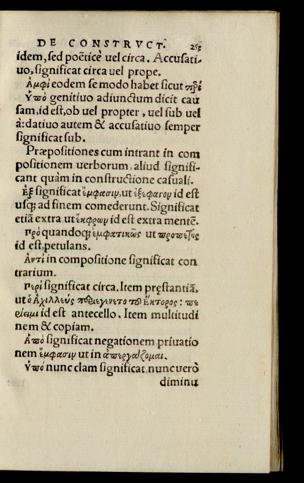 DE CONSTRVCT.
idem, sed poëticè uel circa. Accusati-
uo, significat circa uel prope.
Ἀμφὶ eodem se modo habet sicut περὶ
Ὑπὸ genitiuo adiunctum dicit cau
sam, id est, ob uel propter, uel sub uel
à: datiuo autem & accusatiuo semper
significat sub.
Præpositiones cum intrant in com
positionem uerborum, aliud signifi-
cant quàm in constructione casuali.
Ἐξ significat ἔμφασιν, ut ἐξέφαγον id est
usq; ad finem comederunt. Significat
etiã extra, ut ἔκφρων id est extra mentẽ.
πρὸ quandoq; ἐμφατικῶς ut προπετὴς
id est, petulans.
Ἀντὶ in compositione significat con
trarium.
περὶ significat circa. Item præstantiã,
ut ὁ Ἀχιλλεὺς τοῦ Ἕκτορος: πε
ρίειμι id est antecello. Item multitudi
nem & copiam.
Ἀπὸ significat negationem, priuatio
nem ἔμφασιν ut in ἀπεργάζομαι.
Ὑπὸ nunc clam significat, nunc uerò
diminu